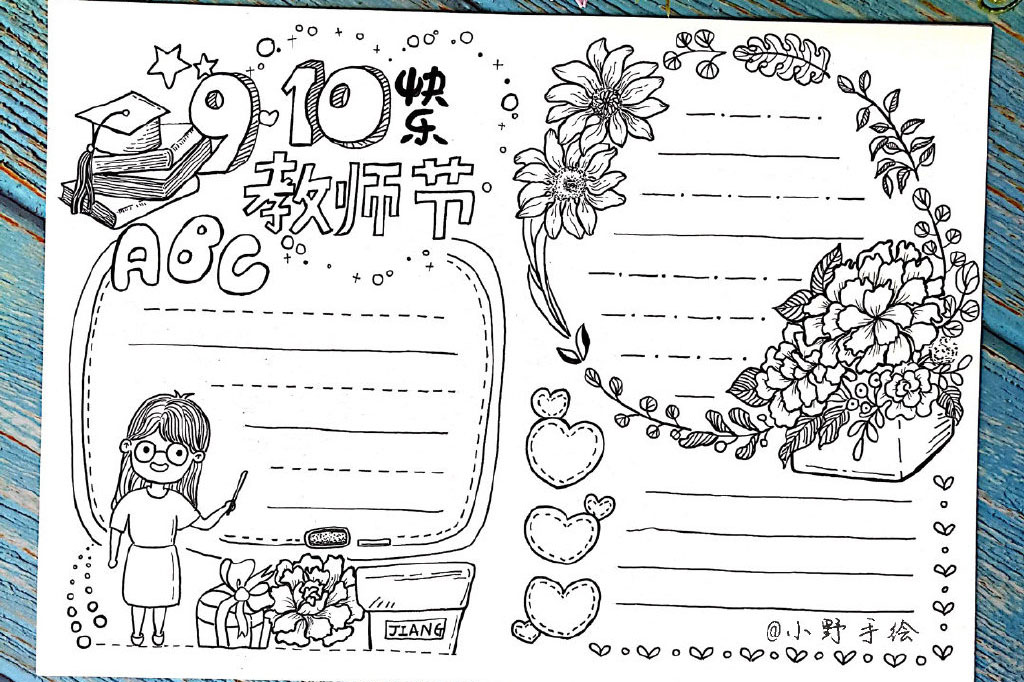 9 10 快乐
教师节
ABC
JIANG
@小野手绘